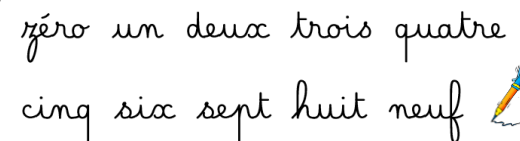 zéro un deux trois quatre
cinq six sept huit neuf